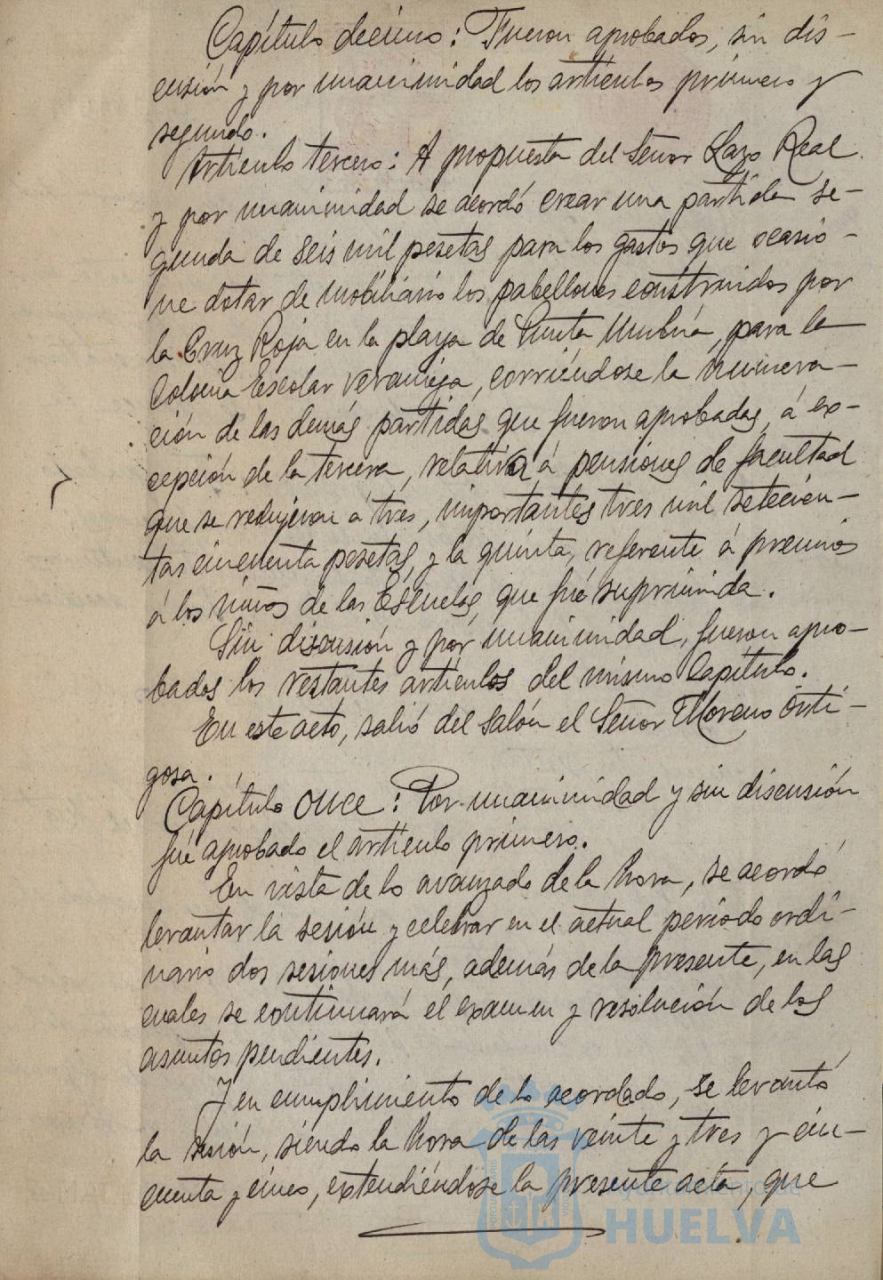 Capítulo décimo: Fueron aprobados, sin dis-
cusión y por unanimidad los artículos primero y
segundo.
Artículo tercero: A propuesta del Señor Lazo Real
y por unanimidad se acordó crear una partida se-
gunda de seis mil pesetas para los gastos que ocasio-
ne dotar de mobiliario los pabellones construidos por
la Cruz Roja en la playa de Punta Umbría, para la
Colonia Escolar veraniega, corriéndose la numera-
ción de las demás partidas que fueron aprobadas, á ex-
cepción de la tercera, relativa á pensiones de facultad
que se redujeron á tres, importantes tres mil setecien-
tas cincuenta pesetas, y la quinta, referente á premios
á los niños de las Escuelas, que fué suprimida.
Sin discusión y por unanimidad, fueron apro-
bados los restantes artículos del mismo Capítulo.
En este acto, salió del Salón el Señor Moreno Orti-
gosa.
Capítulo once: Por unanimidad y sin discusión
fué aprobado el artículo primero.
En vista de lo avanzado de la hora, se acordó
levantar la sesión y celebrar en el actual período ordi-
nario dos sesiones más, además de la presente, en las
cuales se continuará el examen y resolución de los
asuntos pendientes.
Y en cumplimiento de lo acordado, se levantó
la sesión, siendo la hora de las veinte y tres y cin-
cuenta y cinco, extendiéndose la presente acta, que
HUELVA